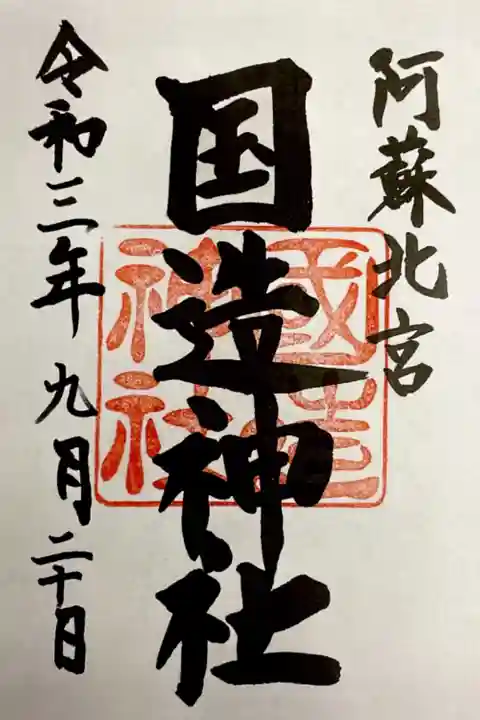 阿蘇北宮
国造神社
國造神社
令和三年九月二十日